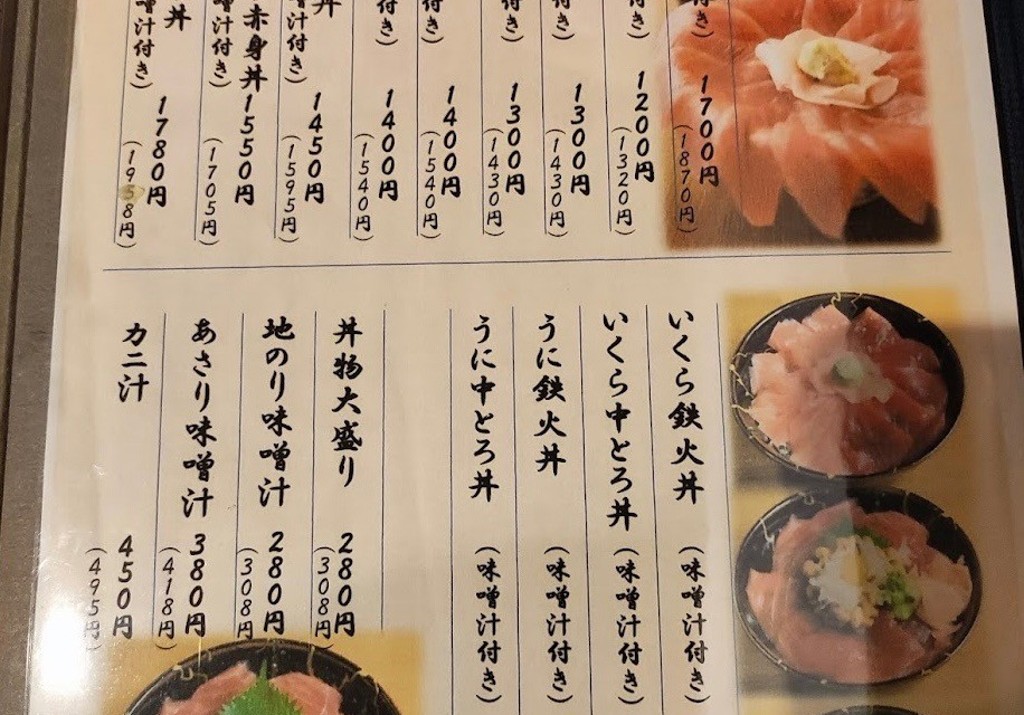 付き） 1700円
（1870円）
付き） 1200円
（1320円）
付き） 1300円
（1430円）
付き） 1300円
（1430円）
付き） 1400円
（1540円）
付き） 1400円
（1540円）
丼
噌汁付き） 1450円
（1595円）
赤身丼 1550円
噌汁付き）
（1705円）
丼
噌汁付き） 1780円
（1958円）
いくら鉄火丼 （味噌汁付き）
いくら中とろ丼 （味噌汁付き）
うに鉄火丼 （味噌汁付き）
うに中とろ丼 （味噌汁付き）
丼物大盛り 280円
（308円）
地のり味噌汁 280円
（308円）
あさり味噌汁 380円
（418円）
カニ汁 450円
（495円）